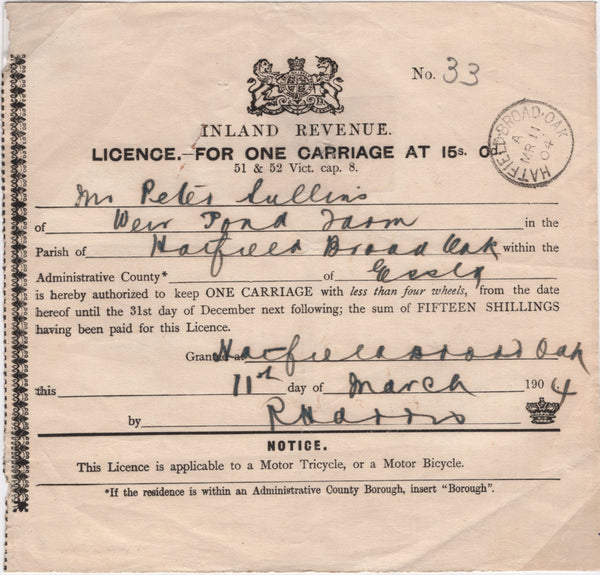 No. 33
INLAND REVENUE.
LICENCE.—FOR ONE CARRIAGE AT 15s. 0d.
51 & 52 Vict. cap. 8.
HATFIELD·BROAD·OAK
A
MR 11
04
Mr Peter Sullins
of Weir Pond Farm in the
Parish of Hatfield Broad Oak within the
Administrative County* of Essex
is hereby authorized to keep ONE CARRIAGE with less than four wheels, from the date
hereof until the 31st day of December next following; the sum of FIFTEEN SHILLINGS
having been paid for this Licence.
Granted at Hatfield Broad Oak
this 11th day of March 1904
by
NOTICE.
This Licence is applicable to a Motor Tricycle, or a Motor Bicycle.
*If the residence is within an Administrative County Borough, insert "Borough".